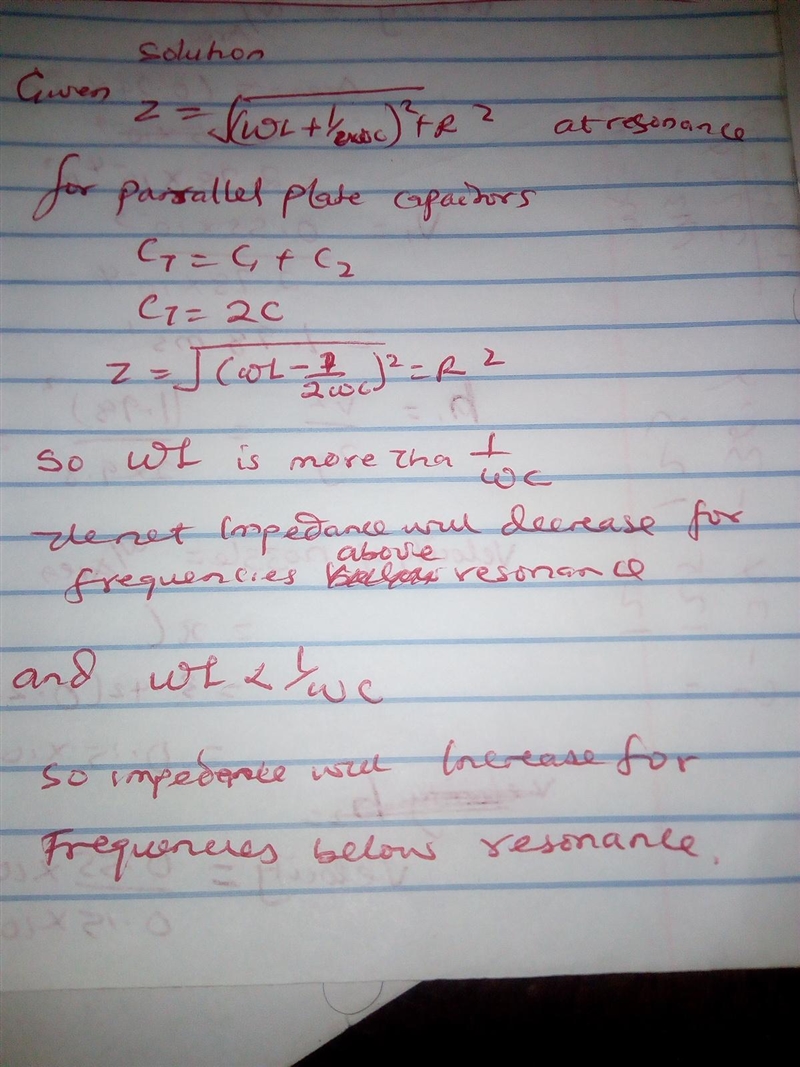 Solution
Given Z = √(WL + 1/2wc)² + R² at resonance
for parallel plate capacitors
C_T = C_1 + C_2
C_T = 2C
Z = √(WL - 1/2wc)² = R²
So WL is more tha 1/wc
net impedance will decrease for
above
frequencies resonance
and WL < 1/wc
So impedance will Increase for
Frequencies below resonance.